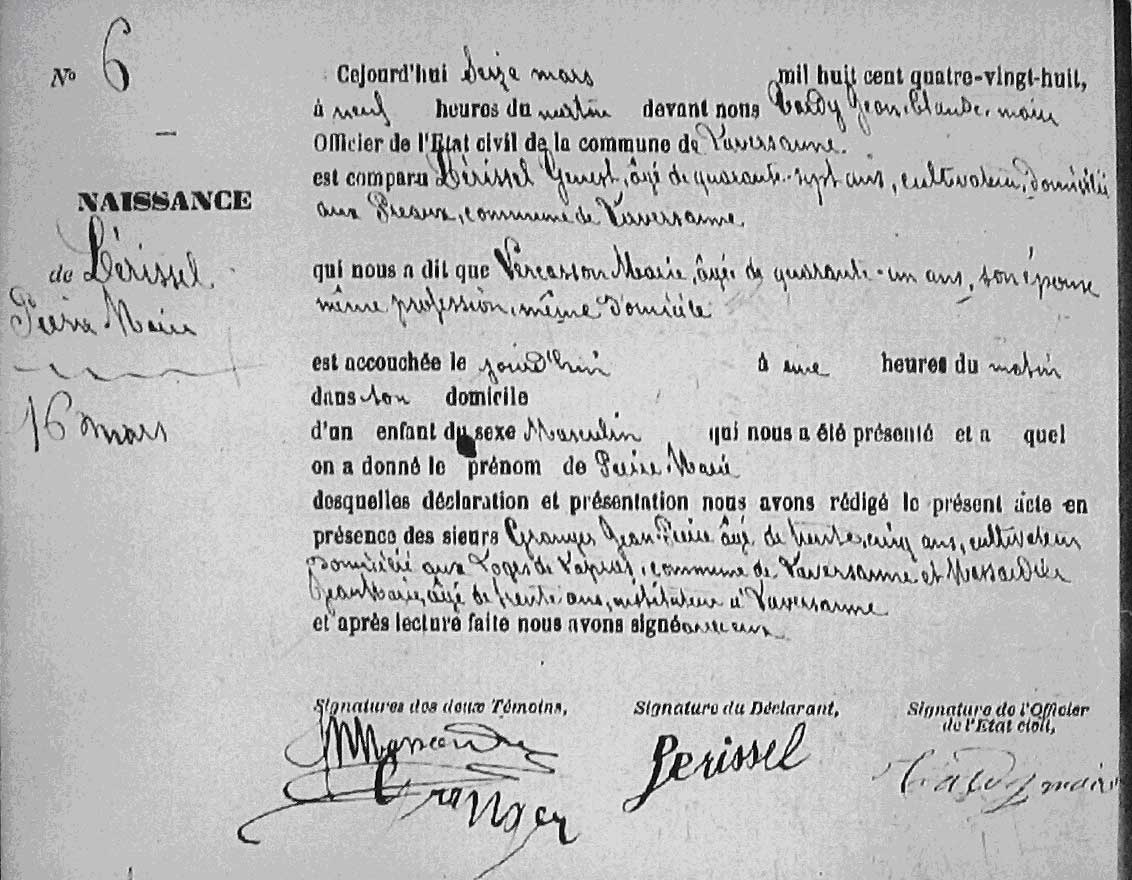 N° 6
NAISSANCE
de Périssel
Pierre Marie
16 mars
Cejourd'hui Seize mars mil huit cent quatre-vingt-huit,
à neuf heures du matin devant nous Tardy Jean Claude, maire
Officier de l'Etat civil de la commune de Vaversanne.
est comparu Périssel Genest, âgé de quarante-sept ans, cultivateur, domicilié
aux Preaux, commune de Vaversanne,
qui nous a dit que Vercasson Marie, âgée de quarante-un ans, son épouse
même profession, même domicile
est accouchée le jourd'hui à une heures du matin
dans son domicile
d'un enfant du sexe Masculin qui nous a été présenté et a quel
on a donné le prénom de Pierre Marie
desquelles déclaration et présentation nous avons rédigé le présent acte en
présence des sieurs Granger Jean Pierre âgé de trente-cinq ans, cultivateur
domicilié aux Loges de commune de Vaversanne et Massardier
Jean Marie, âgé de trente ans, instituteur à Vaversanne
et après lecture faite nous avons signé avec eux.
Signatures des deux Témoins, Signature du Déclarant, Signature de l'Officier
de l'Etat civil,
Granger Perissel Tardy maire